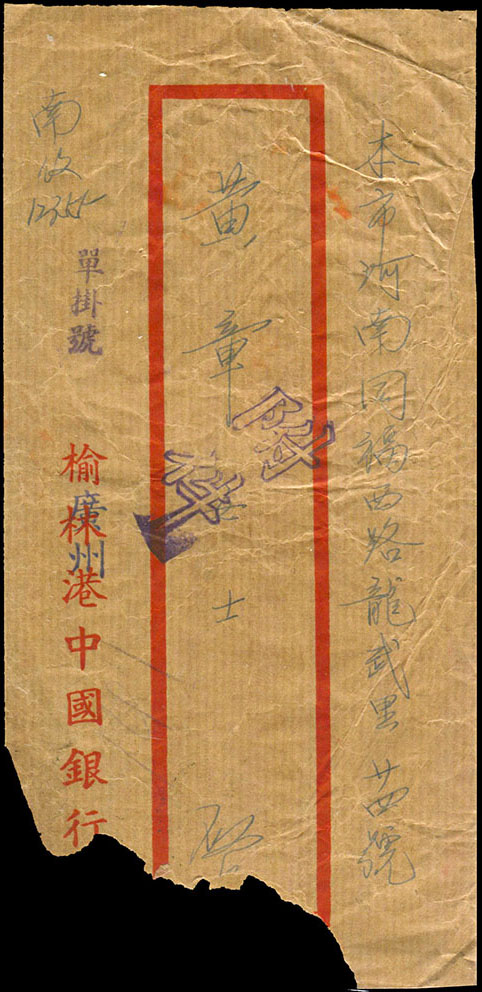 本市河南同福西路龍武里廿四號
黃章女士 啓
南收
12365
單掛號
榆林港中國銀行
廣州